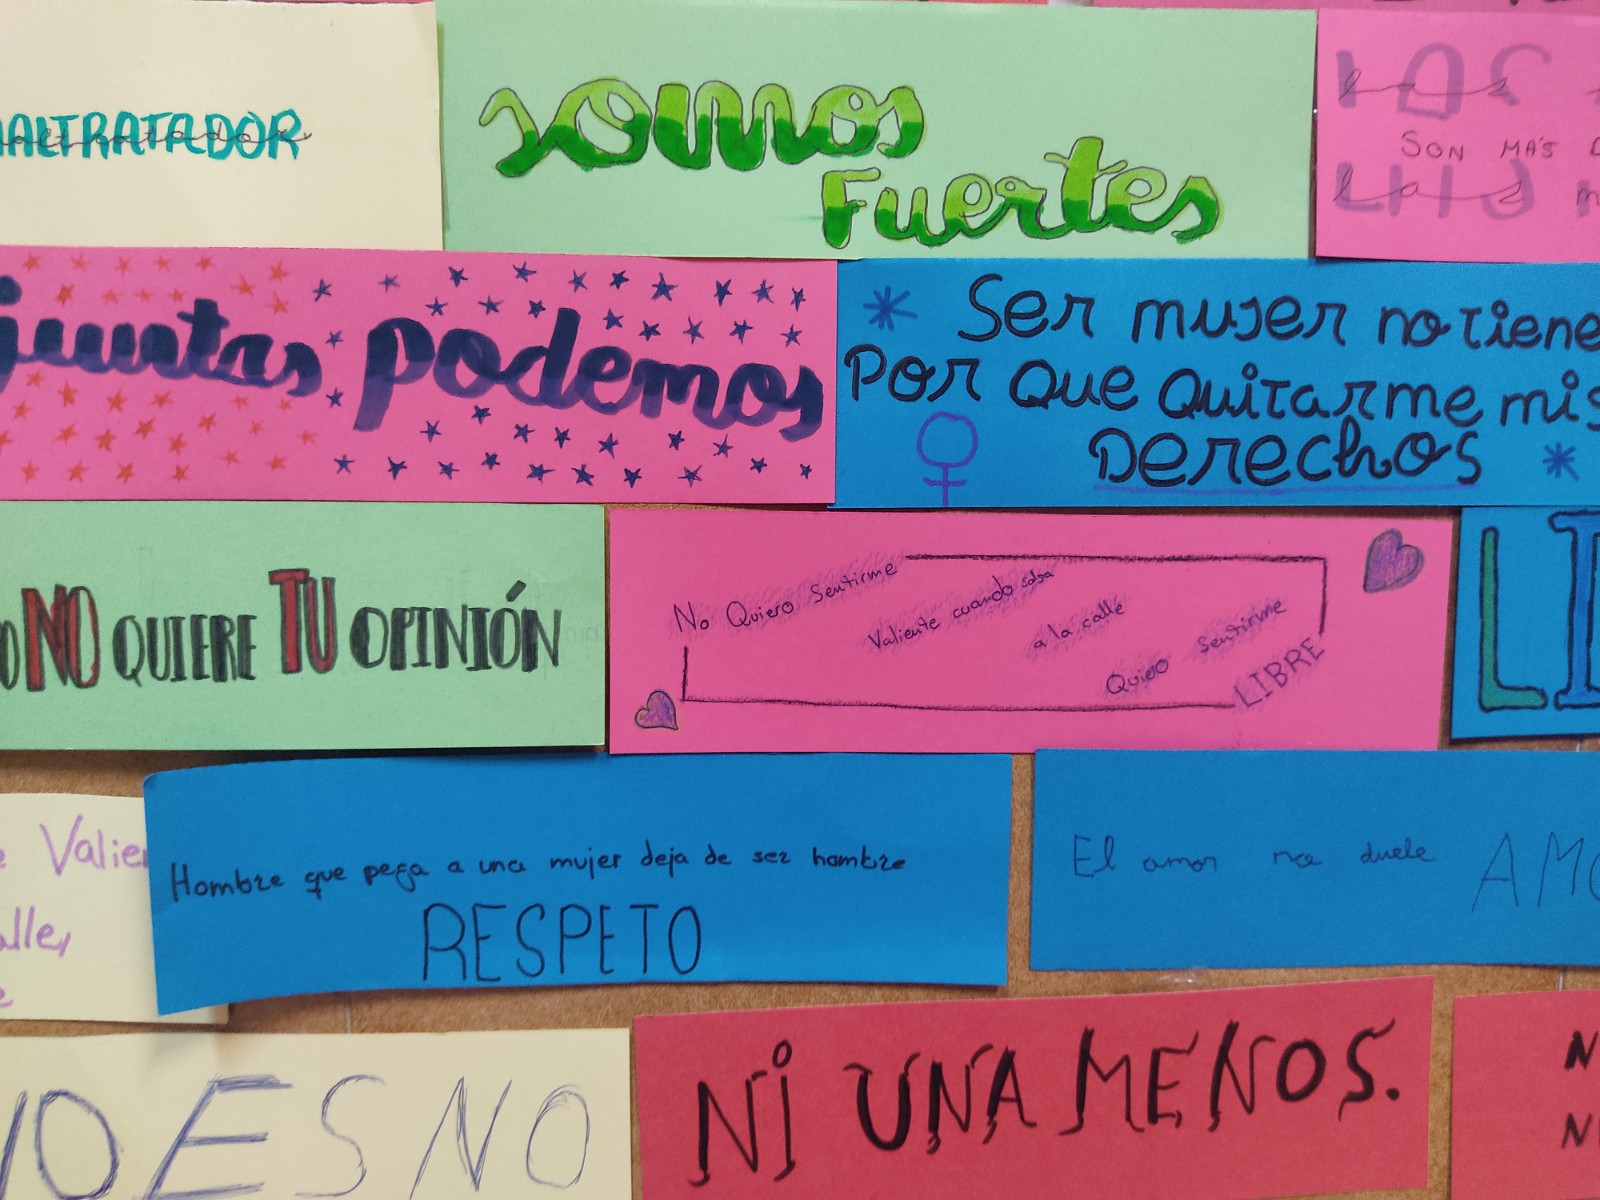 somos
Fuertes
SON MÁS
juntas podemos
Ser mujer no tiene
Por que quitarme mis
Derechos
NO QUIERE TU OPINIÓN
No Quiero Sentirme
Valiente cuando salga
a la calle
Quiero Sentirme
LIBRE
Hombre que pega a una mujer deja de ser hombre
RESPETO
El amor no duele
ES NO
NI UNA MENOS.